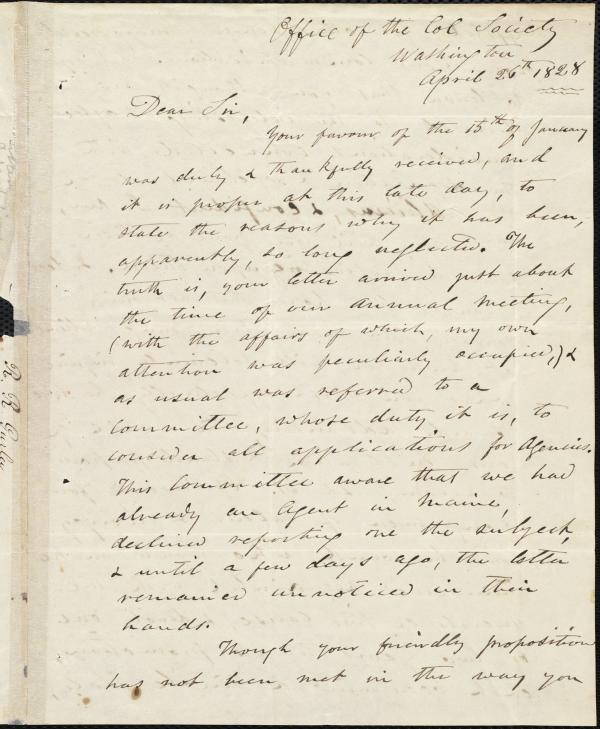 Office of the Col Society
Washington
April 26th 1828
Dear Sir,
Your favour of the 15th of January
was duly & thankfully received, and
it is proper at this late day, to
state the reasons why it has been,
apparently, so long neglected. The
truth is, your letter arrived just about
the time of our Annual Meeting,
(with the affairs of which, my own
attention was peculiarly occupied,) &
as usual was referred to a
Committee, whose duty it is, to
consider all applications for Agencies.
This Committee aware that we had
already an Agent in Maine,
declined reporting one the subject,
& until a few days ago, the letter
remained unnoticed in their
hands.
Though your friendly proposition
has not been met in the way you
R. R. Gurley